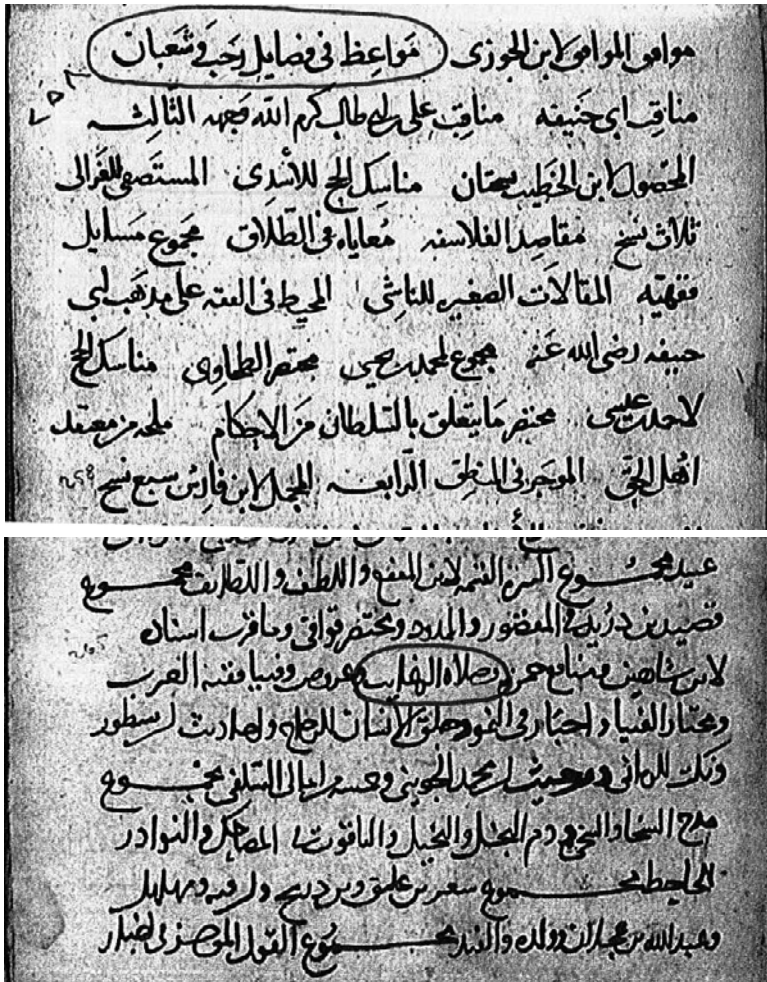 موافق المرافق لابن الجوزى مواعظ فى فضايل رجب وشعبان
مناقب ابى حنيفه مناقب على بن ابى طالب كرم الله وجهه الثالثه
المحصول لابن الخطيب نسختان مناسك الحج للأسدى المستصفى للغزالى
ثلاث نسخ مقاصد الفلاسفه معاياه فى الطلاق مجموع مسايل
فقهيه المقالات الصغير للناشى المحيط فى الفقه على مذهب ابى
حنيفه رضى الله عنه مجموع لمحمد بن يحيى مختصر الطحاوى مناسك الحج
لاحمد بن عيسى مختصر ما يتعلق بالسلطان من الاحكام ملحه من معتقد
اهل الحق الموجز فى المنطق الرابعه المجمل لابن فارس سبع نسخ
عبيد مجموع الدره اليتيمه لابن المقفع واللطف واللطايف مجموع
قصيد بن دريد فى المقصور والممدود ومختصر قوافى وما قرب اسناده
لابن شاهين وصلاه الرغايب وعروض وفتيا فقيه العرب
ومختار الفتيا واخبار فى النحو وخلق الانسان للزجاج واحاديث
ونكت للرمانى ومن امالى السلفى مجموع
مدح السخا والسخى وذم البخل والبخيل والياقوت المضاحك والنوادر
للجاحظ مجموع شعر ومهلهل
وعبدالله بن عجلان والفند مجموع القول الموجز فى